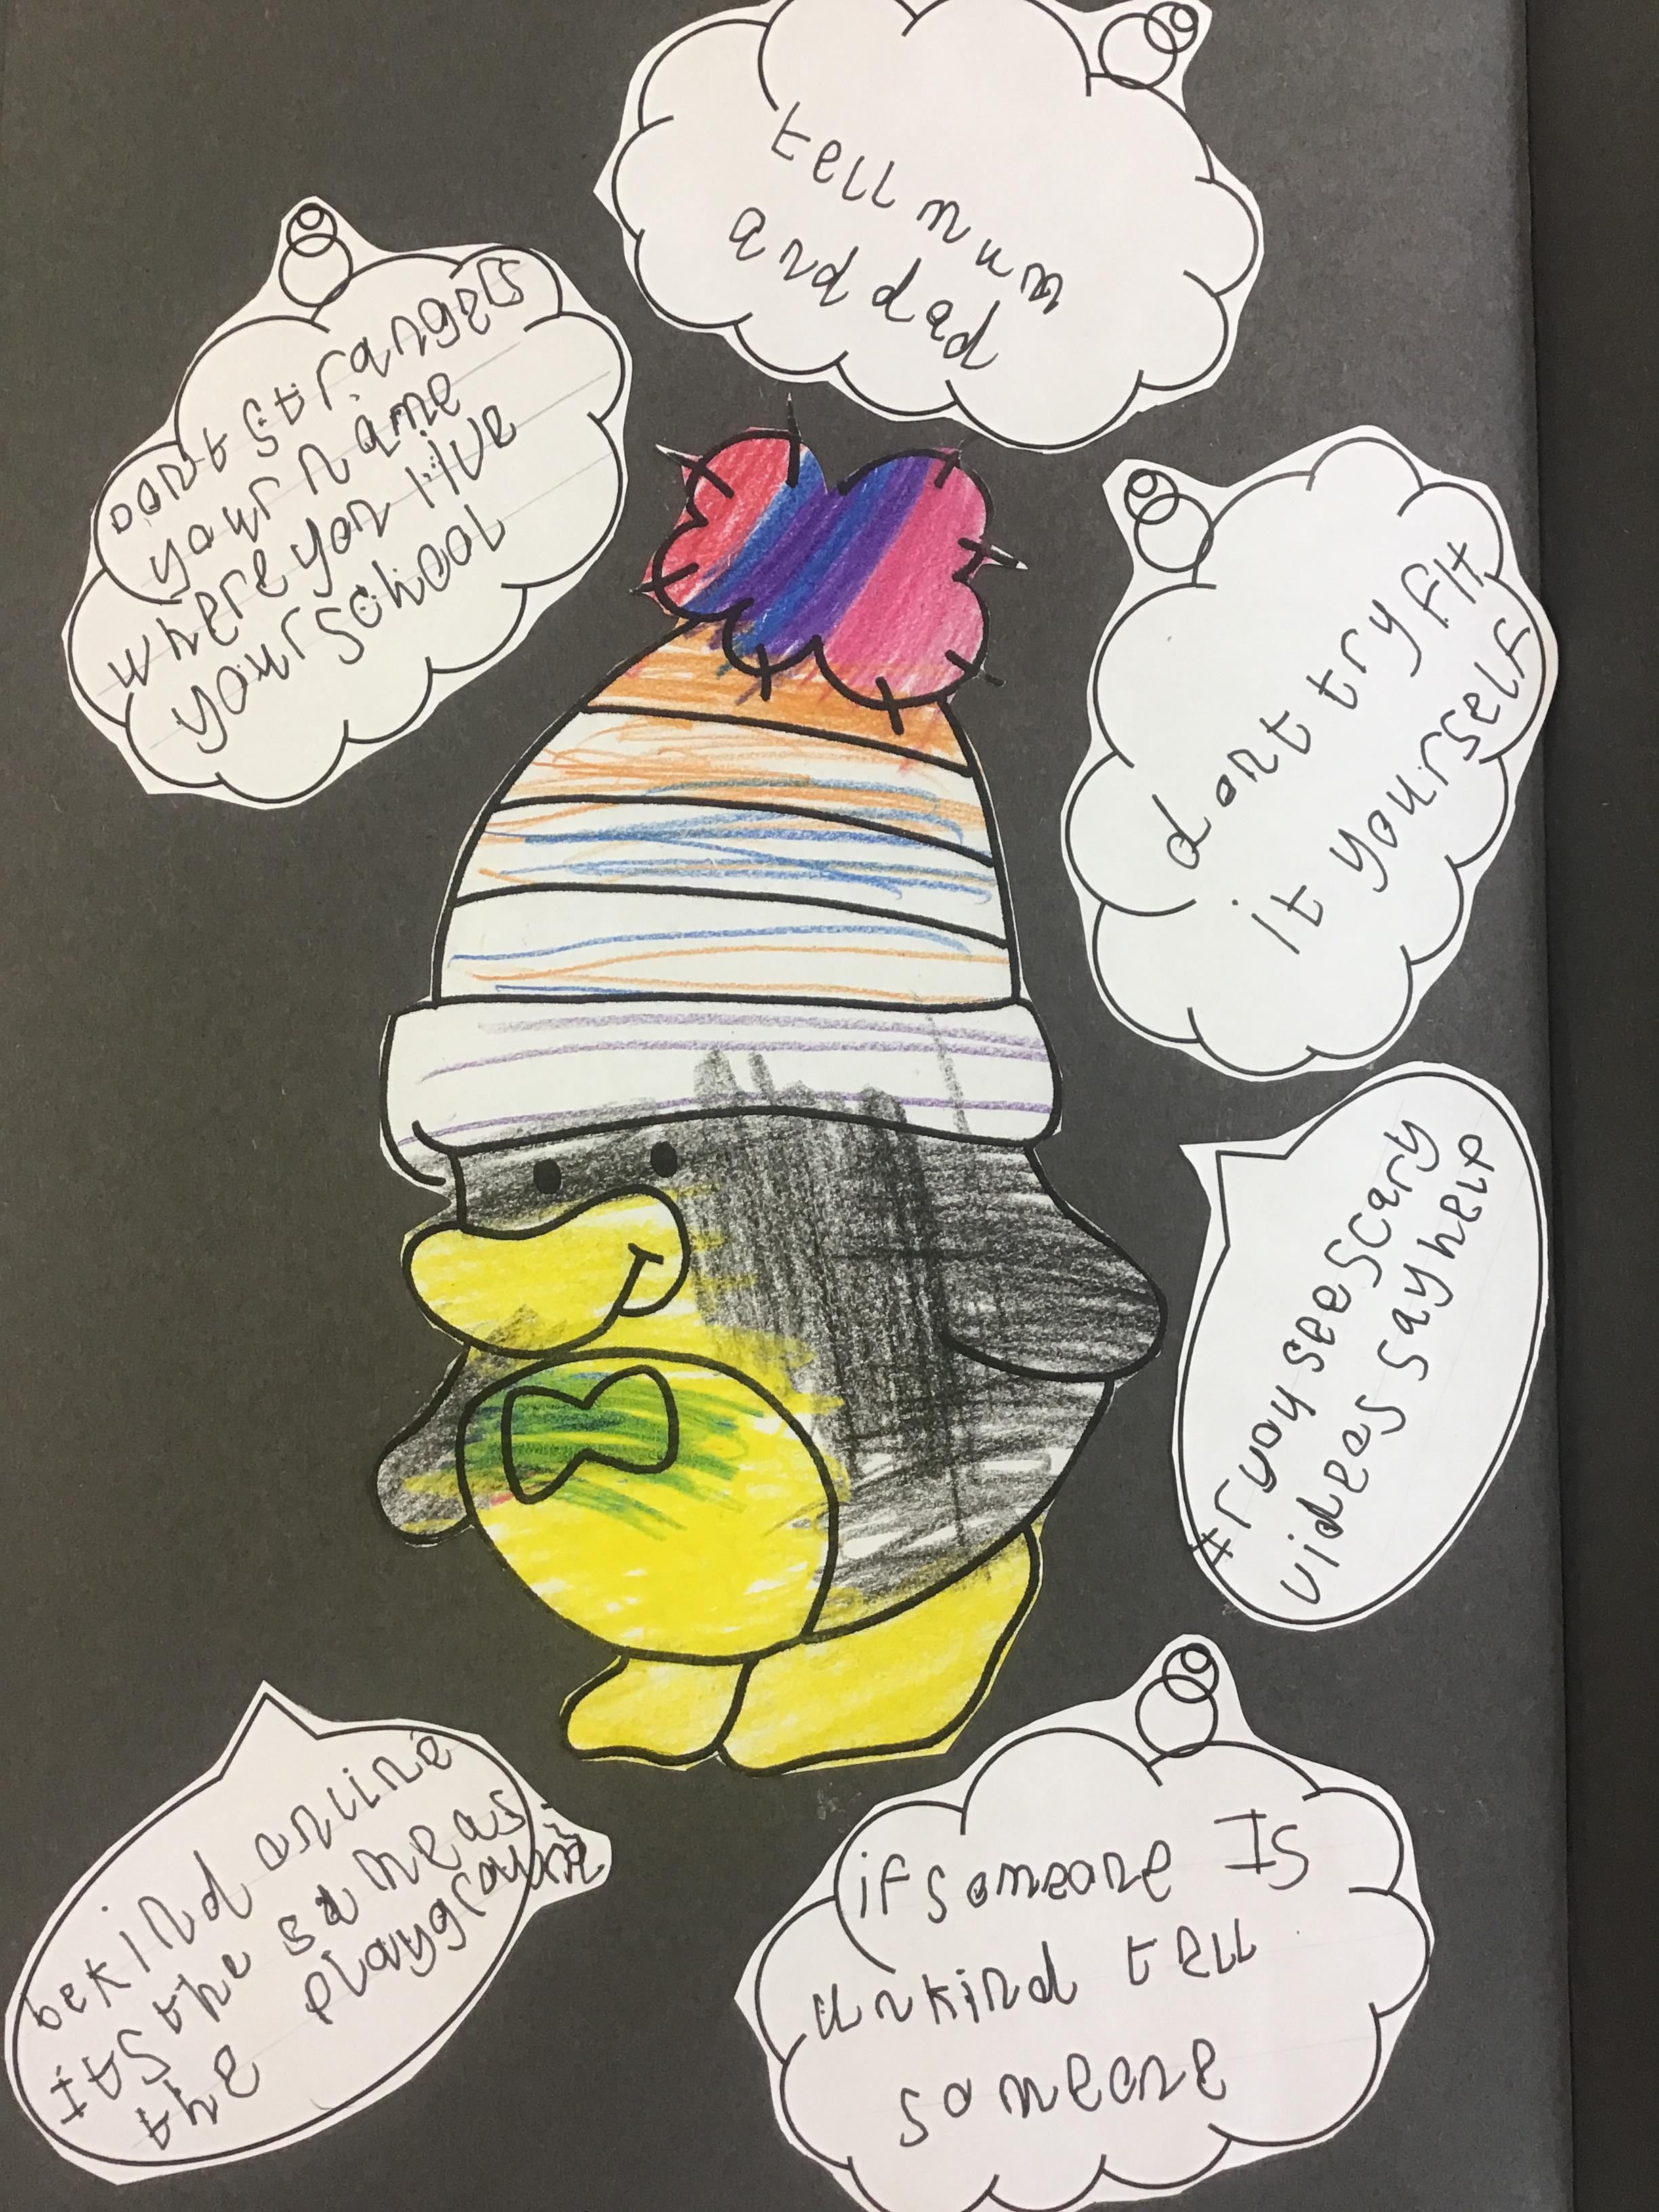 tell mum
and dad
Dont strangers
your name
where you live
your school
dont try fit
it yourself
if uoy see scary
videes say help
be kind online
its the same as
the playgroun
if someone Is
unkind tell
someone